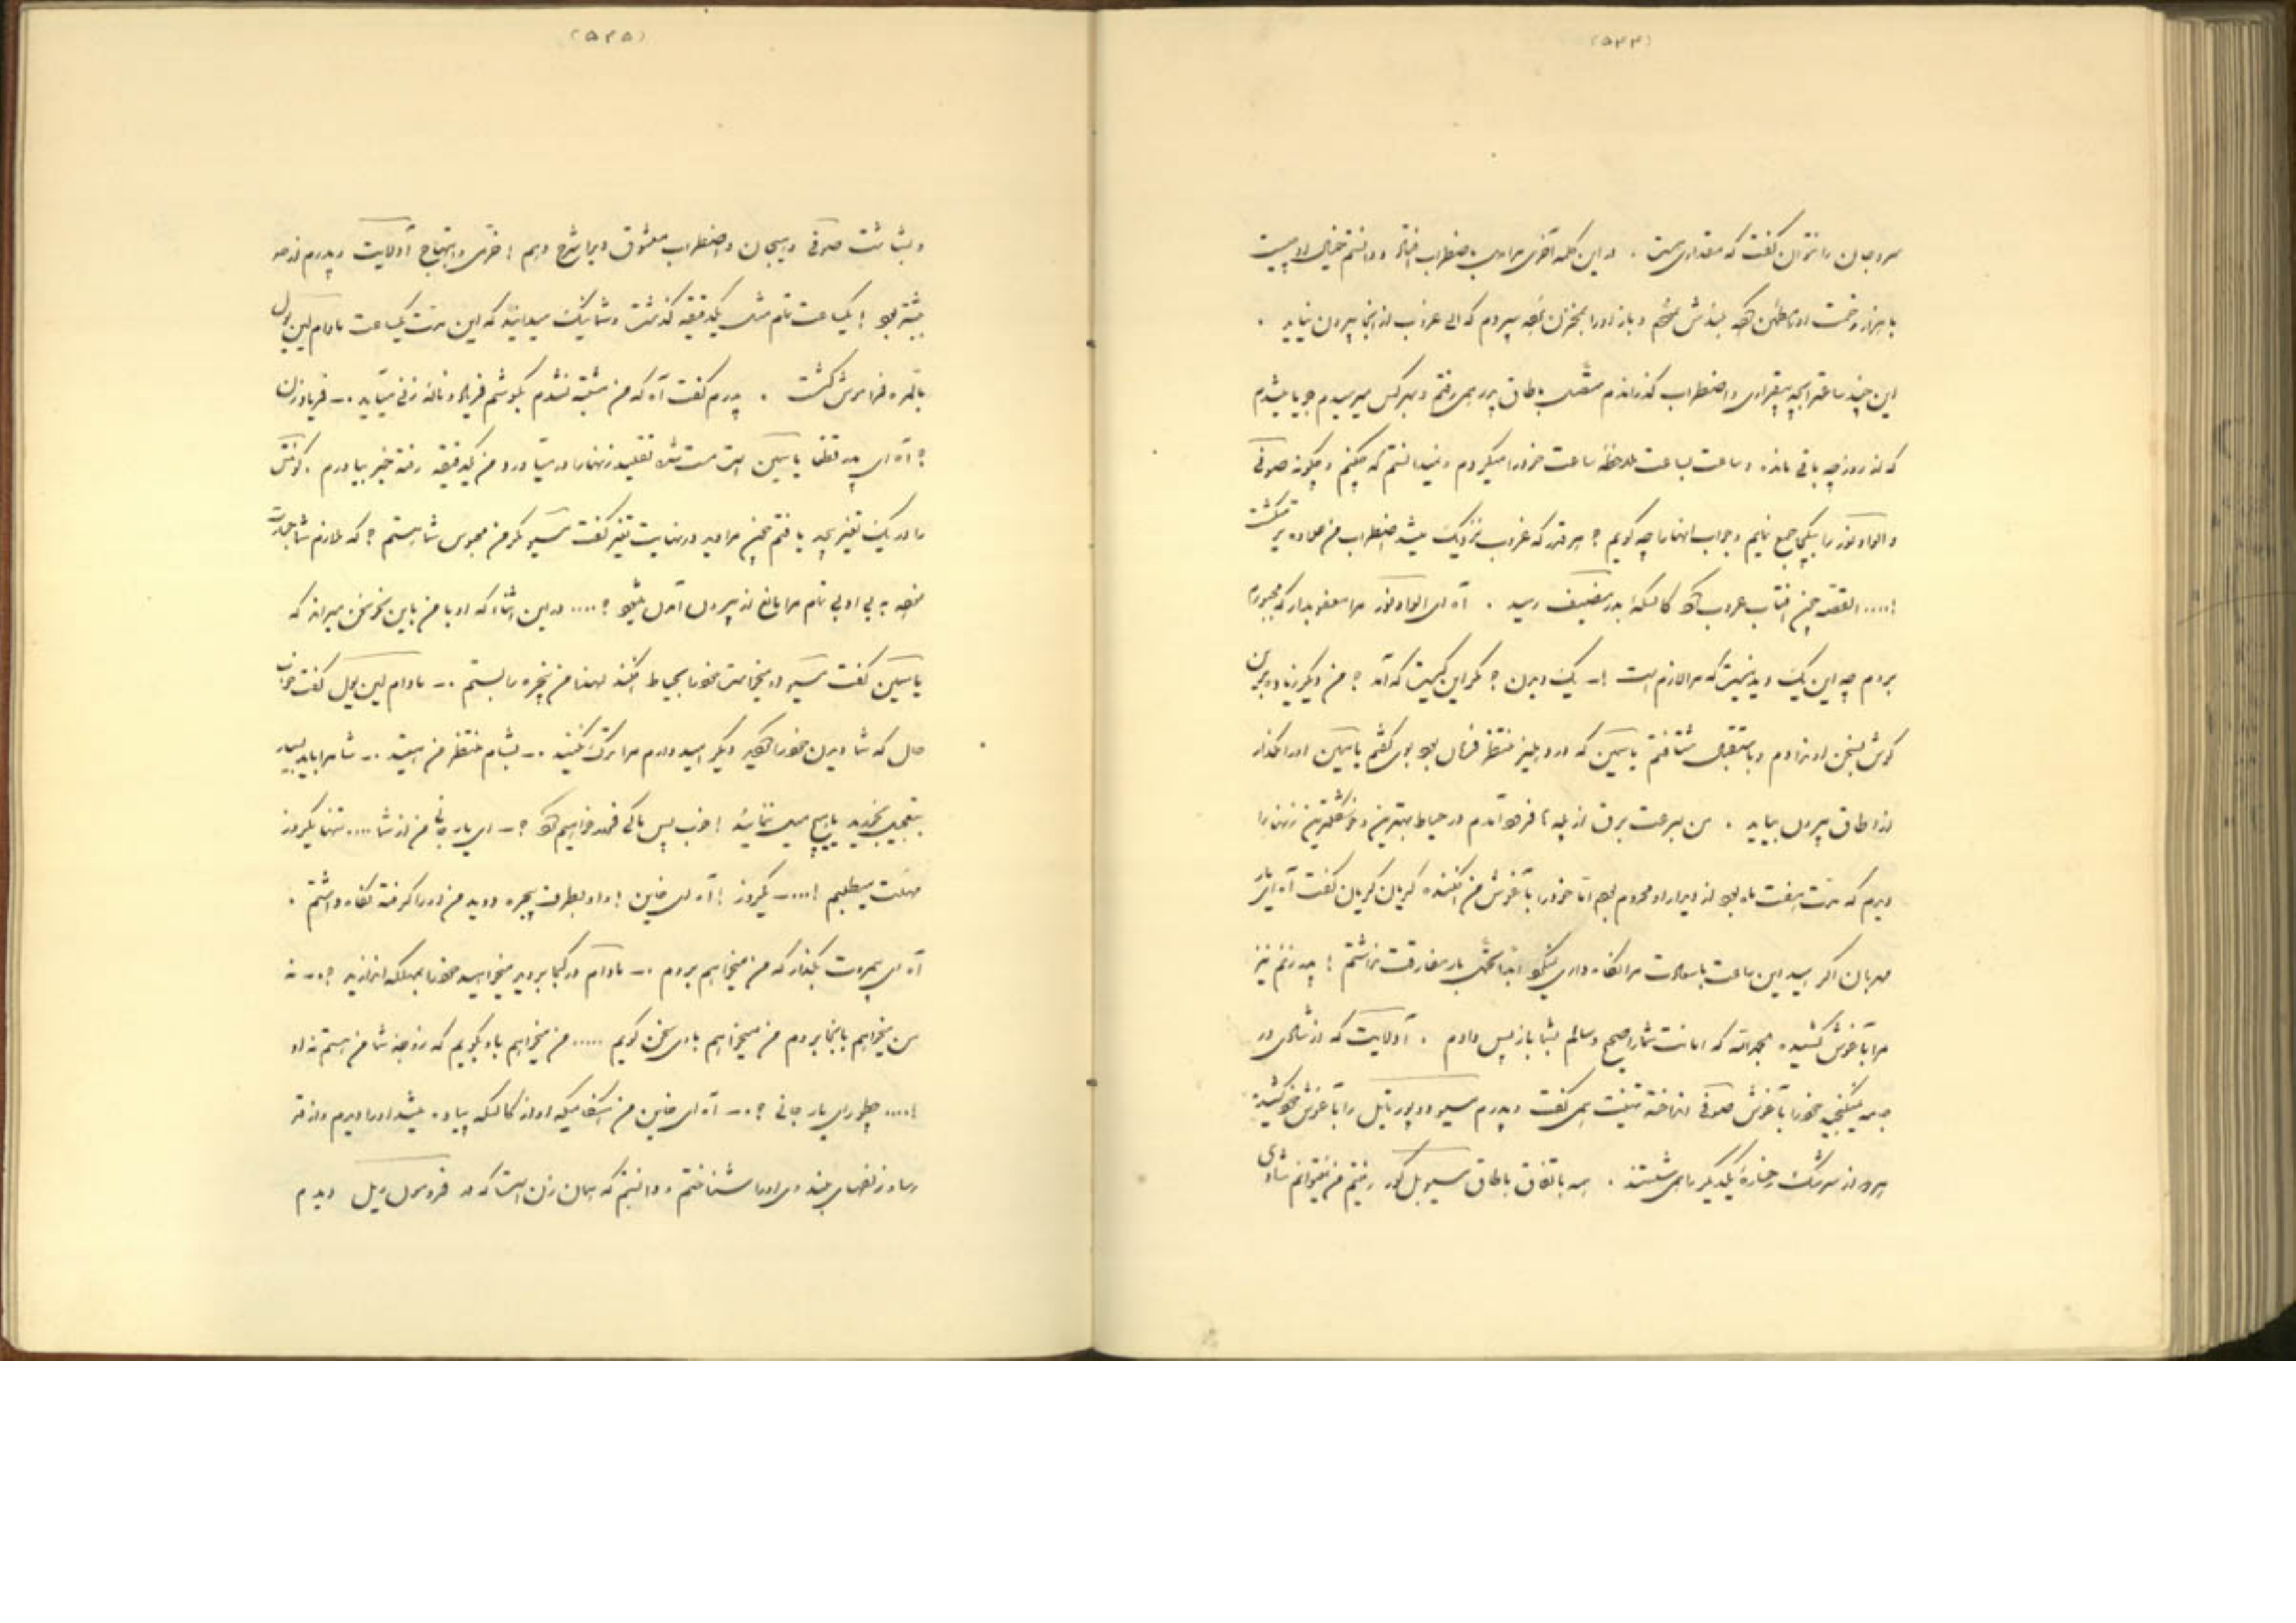 (۵۴۴)
سر و جان را نتوان گفت که مقداری هست . در این کلمه آخری مرا روی باضطراب افتاد و دانستم خیال او چیست
با هزار زحمت او را مطمئن کرده و باز او را بمخزن برده سپردم که الی غروب از آنجا بیرون نیاید .
این چند ساعت را بچه بیقراری و اضطراب گذراندم متصل باطاق پدر همی رفتم و بهر کس میرسیدم جویا میشدم
که از روز چه باقی مانده و ساعت بساعت ملاحظه ساعت خود را میکردم و نمیدانستم که چکنم و چگونه صوفی
و الوادونور را بیکجا جمع نمایم و جواب اینها را چه گویم ؟ هر قدر که غروب نزدیک میشد اضطراب من زیاده تر میگشت
!.... القصه چون آفتاب غروب کرد کالسکه بدر مضیف رسید . آه ای الوادونور مرا معفو بدار که مجبورم
بروم چه این یک دیدنیست که مرا لازم است !ــ یک دیدن ؟ مگر این کیست که آمد ؟ من دیگر زیاده بر این
گوش بسخن او ندادم و باستقبال شتافتم یاسمین که در دهلیز منتظر فرمان بود بوی گفتم یاسمین او را مگذار
از اطاق بیرون بیاید . من بسرعت برق از پله ها فرود آمدم در حیاط بهترین و خوشگلترین زنها را
دیدم که مدت هفت ماه بود از دیدار او محروم بودم خود را بآغوش من افکنده گریان گریان گفت آه ای یار
مهربان اگر امید این ساعت با سعادت مرا نگاه داری نمیکرد ابدا تحمل بار مفارقت نداشتم ! پدر زنم نیز
مرا بآغوش کشیده بحمدالله که امانت شما را صحیح و سالم بشما باز پس دادم . آدلایت که از شادی در
جامه نمیگنجید خود را بآغوش صوفی انداخته تهنیت همی گفت و پدرم مسیو دوپورتایل را بآغوش خود کشیده
هر دو از سرشک رخساره یکدیگر را همی شستند . همه باتفاق باطاق مسیو بل کور رفتیم من نمیتوانم شادی
(۵۴۵)
و بشاشت صوفی و هیجان و اضطراب معشوق ویرا شرح دهم ! خرمی و ابتهاج آدلایت و پدرم از همه
بیشتر بود ! یکساعت تمام مثل یکدقیقه گذشت و شما نیک میدانید که این مدت یکساعت مادام لین یول
بالمره فراموش گشت . پدرم گفت آه که من مشتبه نشدم بگوشم فریاد و ناله زنی میآید .ــ فریاد زن
؟ آه ای پدر قطعا یاسمین است مست شده تقلید زنها را در میآورد من یکدقیقه رفته خبر بیاورم . کونتس
را در یک تغیر بیحد یافتم چون مرا دید در نهایت تغیر گفت مسیو مگر من محبوس شما هستم ؟ که ملازم شما جسارت
نموده به بی ادبی تمام مرا مانع از بیرون آمدن میشود ؟.... در این اثنا که او با من باین نحو سخن میراند که
یاسمین گفت مسیو او میخواست خود را بحیاط افکند لهذا من پنجره را بستم .ــ مادام لین یول گفت خوب
حال که شما دیدن خود را کردید دیگر امید دارم مرا ترک نکنید .ــ بشام منتظر من هستند .ــ شما مرا باید بسیار
بتعجیل بخورید یا هیچ میل ننمائید ! خوب پس با کی خواهیم کرد ؟ــ ای یار جانی من از شما .... تنها یکروز
مهلت میطلبم !....ــ یکروز ! آه ای خاین ! و او بطرف پنجره دوید من او را گرفته نگاه داشتم .
آه ای بیمروت بگذار که من میخواهم بروم .ــ مادام در کجا بروید میخواهید خود را بمهلکه اندازید ؟.ــ نه
من میخواهم بآنجا بروم من میخواهم با وی سخن گویم ..... من میخواهم باو بگویم که زوجه شما من هستم نه او
!.... چطور ای یار جانی ؟.ــ آه ای خاین من هنگامیکه او از کالسکه پیاده میشد او را دیدم و از قد
رسا و زلفهای بلند وی او را شناختم و دانستم که همان زن است که در فردوس ریل دیدم